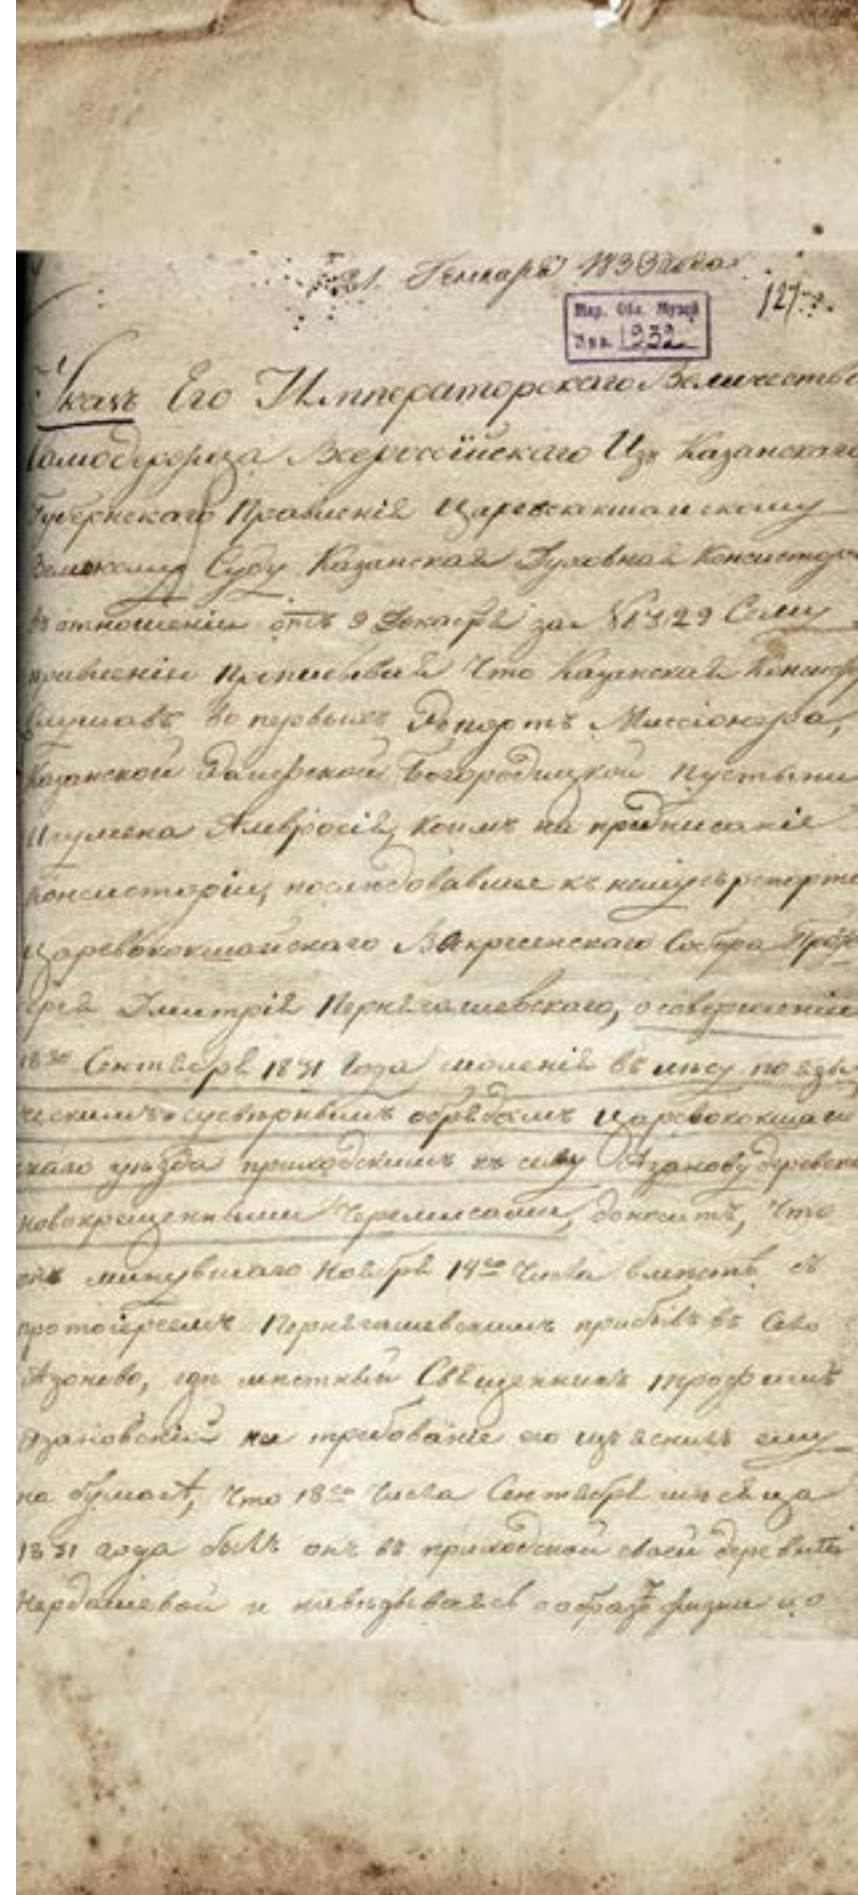 21. Генваря 1833 года
127
Мар. Обл. Музей
Инв. 1232
Указъ Его Императорскаго Величества
Самодержца Всероссїйскаго Изъ Казанскаго
Губернскаго Правленія Царевококшайскому
Земскому Суду Казанская Духовная Консистор
въ отношеніи отъ 9 Декабря за № 8129 Сему
правленію прописывая что Казанская Консистор
слушавъ во первыхъ Репортъ Миссіонера,
Казанской Раифской Богородицкой пустыни
Игумена Амвросія, коимъ на предписаніе
Консисторіи, последовавшее къ нему съ репорта
Царевококшайскаго Воскресенскаго Собора Прото
ерея Дмитрія Пернягашевскаго, о совершеніи
18го Сентября 1831 Года моленія въ лесу по языч
ческимъ суевѣрнымъ обрядамъ Царевококшай
скаго уезда приходскими къ селу Азанову деревень
новокрещенными Черемисами, доноситъ, что
онъ минувшаго Ноября 14го Числа вместе съ
протоіереемъ Пернягашевскимъ прибылъ въ Село
Азоново, где местный Священникъ Трофимъ
Азановскій на требованіе его изъяснилъ ему
на бумагѣ, что 18го Числа Сентября месяца
1831 года былъ онъ въ приходской своей деревнѣ
Кардашевой и наведываясь о образѣ жизни но